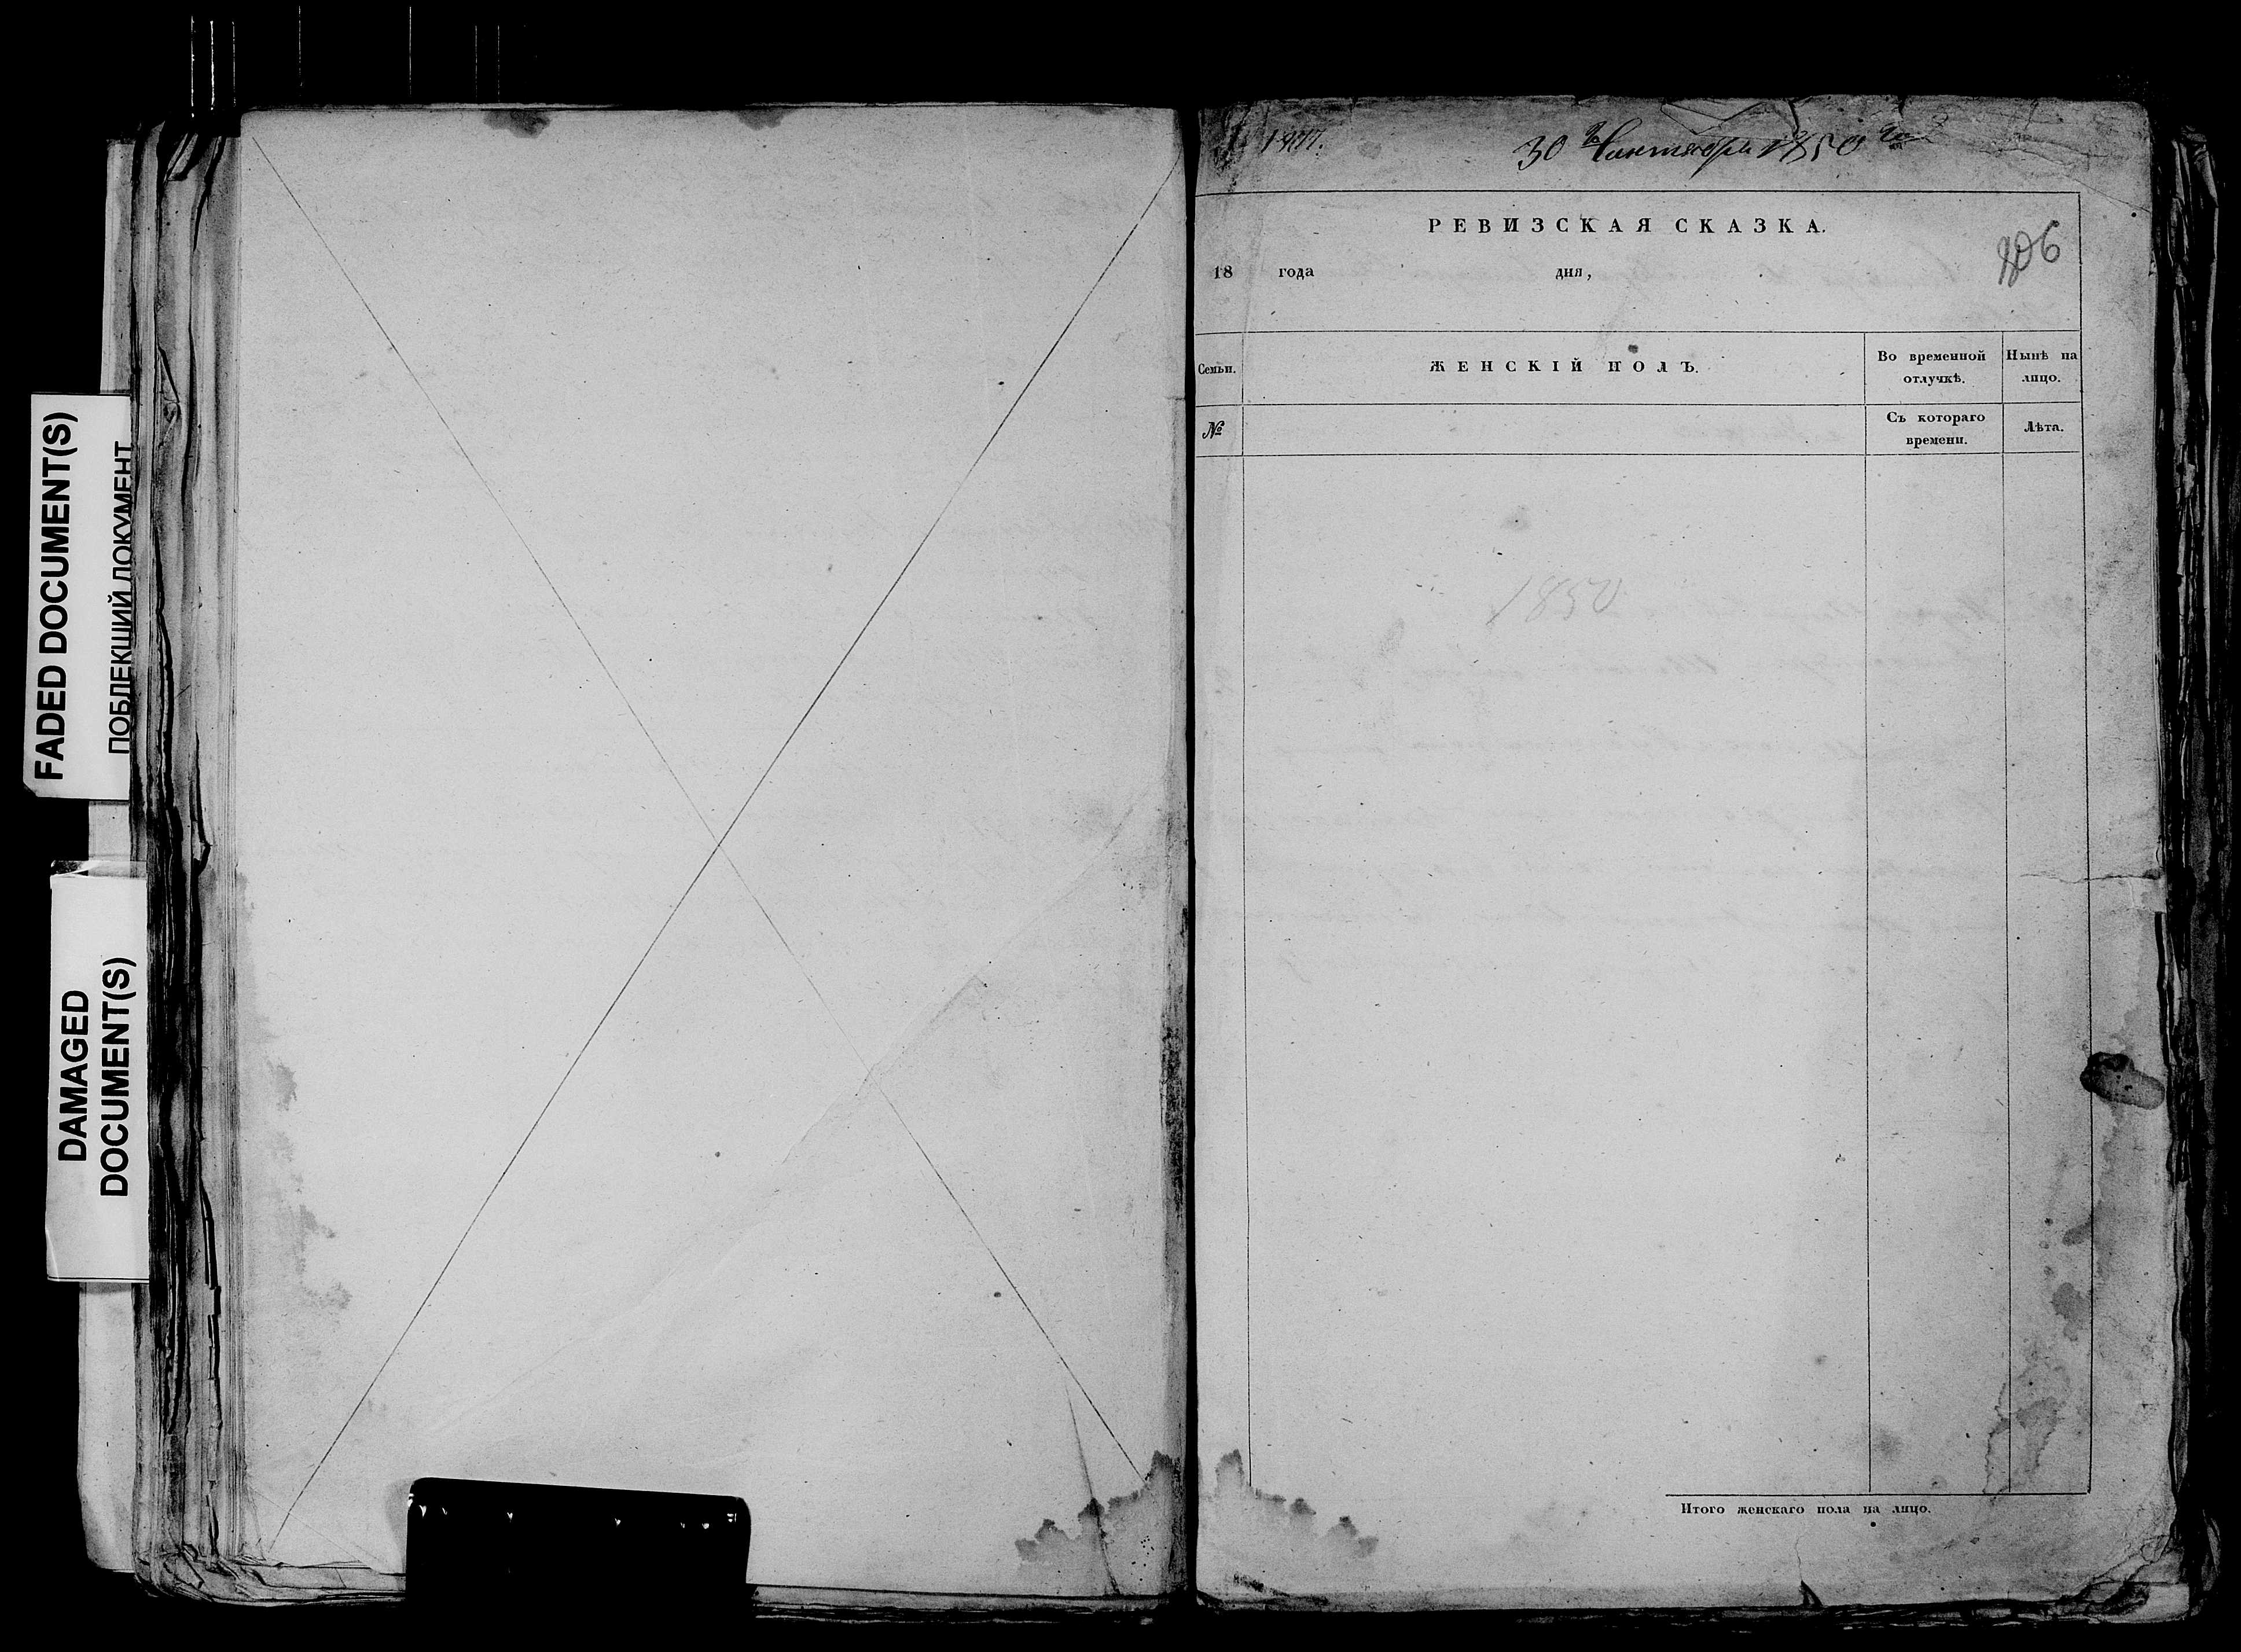 FADED DOCUMENT(S)
ПОБЛЕКШИЙ ДОКУМЕНТ
DAMAGED
DOCUMENT(S)
30 Сентября 1850
РЕВИЗСКАЯ СКАЗКА.
18 года дня,
Семьи. ЖЕНСКІЙ ПОЛЪ. Во временной отлучкѣ. Нынѣ на лицо.
№ Съ котораго времени. Лѣта.
1850
Итого женскаго пола на лицо.